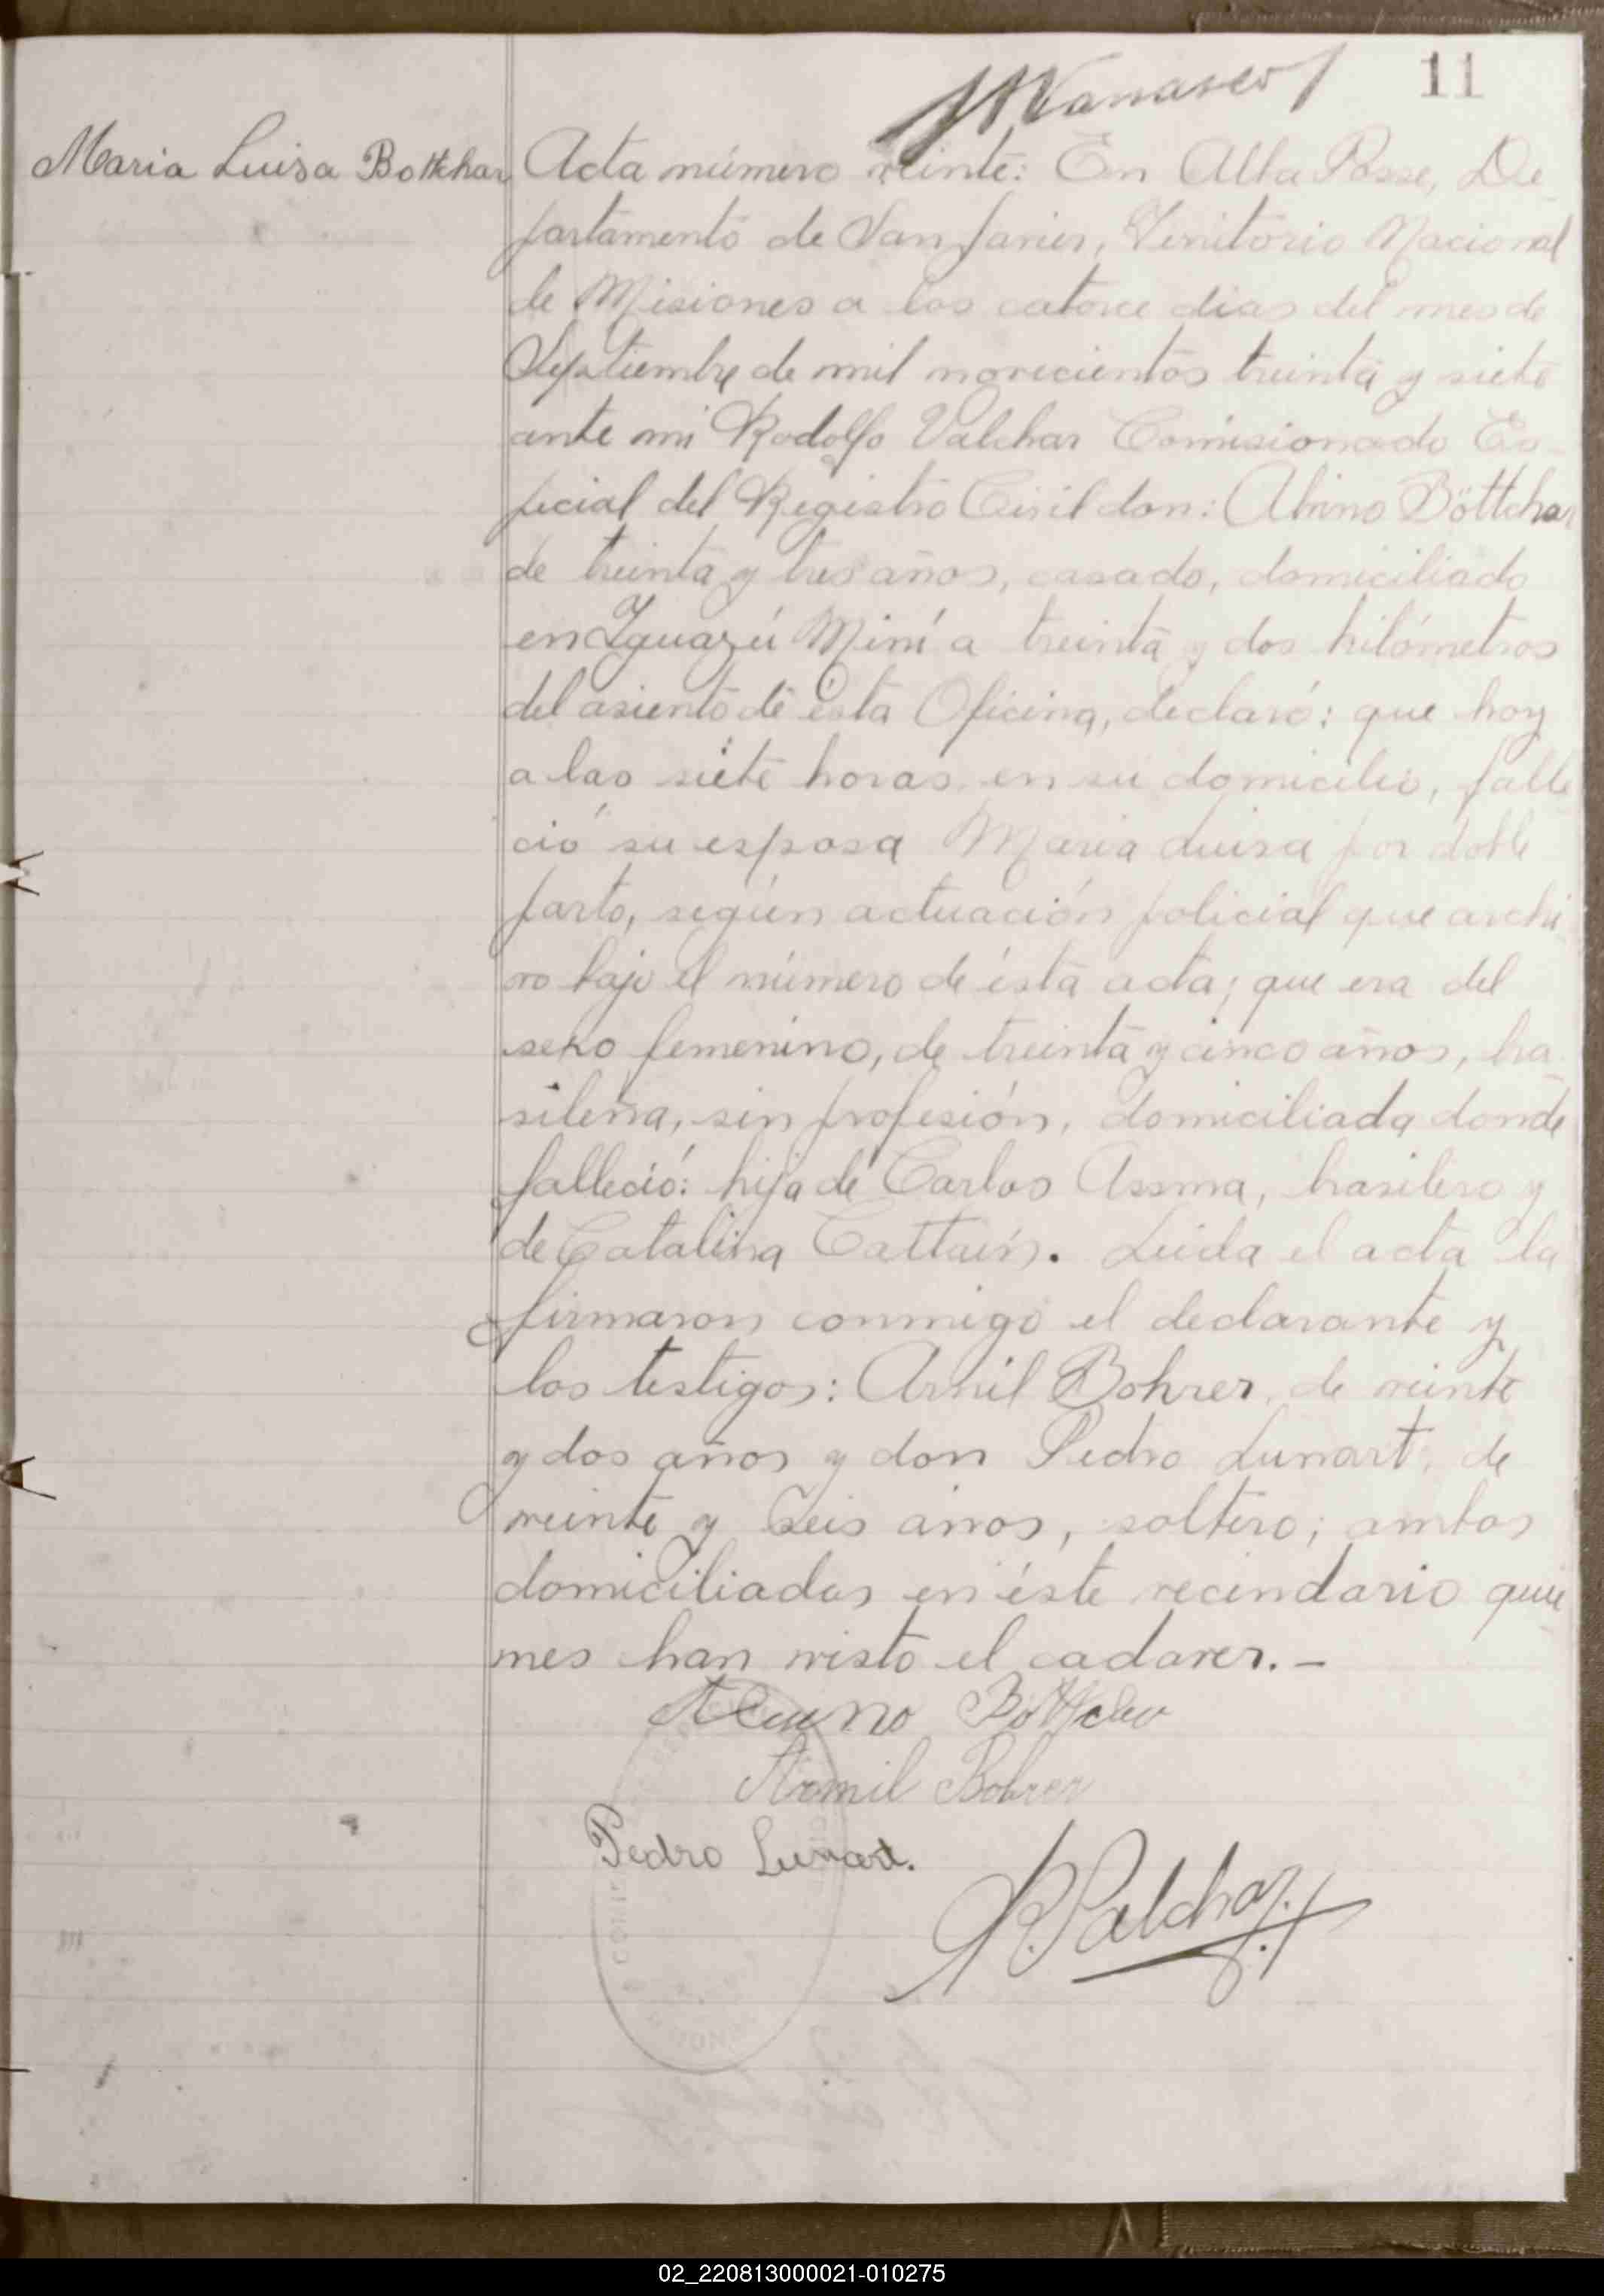 11
Maria Luisa Bottchar
Acta número veinte: En Alba Posse, De-
partamento de San Javier, Territorio Nacional
de Misiones a los catorce dias del mes de
Septiembre de mil novecientos treinta y siete
ante mi Rodolfo Valchar Comisionado Es-
pecial del Registro Civil don: Alvino Böttchar
de treinta y tres años, casado, domiciliado
en Yguazú Miní a treinta y dos kilómetros
del asiento de ésta Oficina, declaró: que hoy
a las siete horas en su domicilio, falle
ció su esposa Maria Luisa por doble
parto, según actuación policial que archi
vo bajo el número de ésta acta; que era del
sexo femenino, de treinta y cinco años, bra
sileña, sin profesión, domiciliada donde
falleció: hija de Carlos Assma, brasilero y
de Catalina Cattaín. Leida el acta la
firmaron conmigo el declarante y
los testigos: Arnil Bohrer, de veinte
y dos años y don Pedro Lunart, de
veinte y seis años, soltero; ambos
domiciliados en éste vecindario quie
nes han visto el cadaver.-
Böttcher
Armil Bohrer
Pedro Lunart.
R. Valchar.
02_220813000021-010275